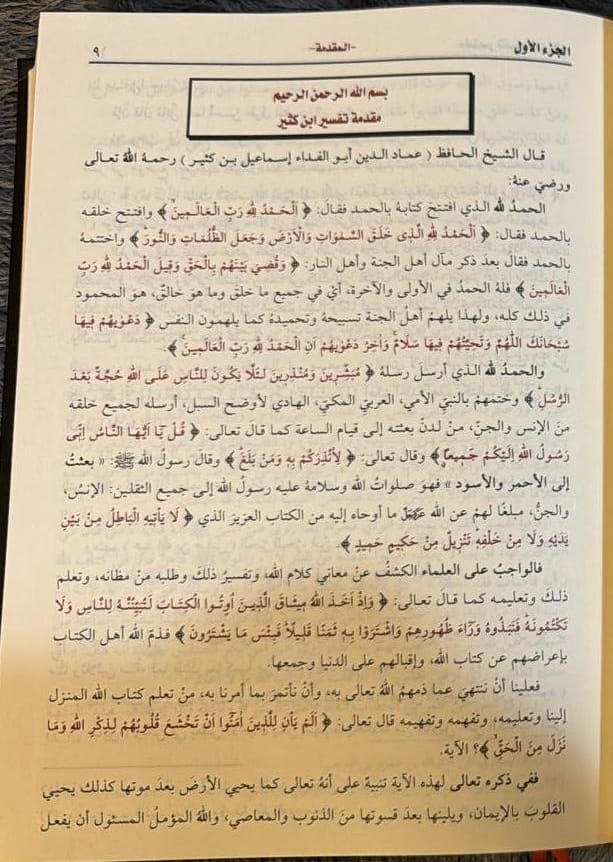 الجزء الأول -المقدمة- ٩
بسم الله الرحمن الرحيم
مقدمة تفسير ابن كثير
قال الشيخ الحافظ ( عماد الدين أبو الفداء إسماعيل بن كثير ) رحمهُ اللهُ تعالى
ورضي عنهُ:
الحمدُ لله الذي افتتح كتابهُ بالحمد فقالَ: ﴿ اَلْحَمْدُ لِلّٰهِ رَبِّ الْعَالَمِينَ ﴾ وافتتح خلقه
بالحمد فقالَ: ﴿ اَلْحَمْدُ لِلّٰهِ الَّذِى خَلَقَ السَّمٰوَاتِ وَالْاَرْضَ وَجَعَلَ الظُّلُمَاتِ وَالنُّورَ ﴾ واختتمهُ
بالحمد فقالَ بعدَ ذكر مآل أهل الجنة وأهل النار: ﴿ وَقُضِىَ بَيْنَهُمْ بِالْحَقِّ وَقِيلَ الْحَمْدُ لِلّٰهِ رَبِّ
الْعَالَمِينَ ﴾ فلهُ الحمدُ في الأولى والآخرة، أيْ في جميع ما خلقَ وما هو خالقٌ، هوَ المحمود
في ذلك كله، ولهذا يلهمُ أهلُ الجنة تسبيحهُ وتحميدهُ كما يلهمون النفس ﴿ دَعْوٰيهُمْ فِيهَا
سُبْحَانَكَ اللّٰهُمَّ وَتَحِيَّتُهُمْ فِيهَا سَلَامٌ وَاٰخِرُ دَعْوٰيهُمْ اَنِ الْحَمْدُ لِلّٰهِ رَبِّ الْعَالَمِينَ ﴾.
والحمدُ لله الذي أرسلَ رسلهُ ﴿ مُبَشِّرِينَ وَمُنْذِرِينَ لِئَلَّا يَكُونَ لِلنَّاسِ عَلَى اللّٰهِ حُجَّةٌ بَعْدَ
الرُّسُلِ ﴾ وختمهُمْ بالنبيِّ الأمي، العربيِّ المكيِّ، الهادي لأوضح السبل، أرسلهُ لجميع خلقه
منَ الإنس والجنِّ، منْ لدنْ بعثته إلى قيام الساعة كما قال تعالى: ﴿ قُلْ يَٓا اَيُّهَا النَّاسُ اِنِّى
رَسُولُ اللّٰهِ اِلَيْكُمْ جَمِيعاً ﴾ وقال تعالى: ﴿ لِاُنْذِرَكُمْ بِهِ وَمَنْ بَلَغَ ﴾ وقال رسول الله ﷺ: « بعثتُ
إلى الأحمر والأسود » فهوَ صلواتُ الله وسلامهُ عليه رسولُ الله إلى جميع الثقلين: الإنسُ،
والجنُّ، مبلغًا لهمْ عن الله ما أوحاه إليه من الكتاب العزيز الذي ﴿ لَا يَأْتِيهِ الْبَاطِلُ مِنْ بَيْنِ
يَدَيْهِ وَلَا مِنْ خَلْفِهِ تَنْزِيلٌ مِنْ حَكِيمٍ حَمِيدٍ ﴾.
فالواجبُ على العلماء الكشفُ عنْ معاني كلام الله، وتفسيرُ ذلكَ وطلبه منْ مظانه، وتعلم
ذلكَ وتعليمه كما قال تعالى: ﴿ وَاِذْ اَخَذَ اللّٰهُ مِيثَاقَ الَّذِينَ اُوتُوا الْكِتَابَ لَتُبَيِّنُنَّهُ لِلنَّاسِ وَلَا
تَكْتُمُونَهُ فَنَبَذُوهُ وَرَٓاءَ ظُهُورِهِمْ وَاشْتَرَوْا بِهِ ثَمَنًا قَلِيلاً فَبِئْسَ مَا يَشْتَرُونَ ﴾ فذمَّ اللهُ أهل الكتاب
بإعراضهم عن كتاب الله، وإقبالهم على الدنيا وجمعها.
فعلينا أنْ ننتهيَ عما ذمهمُ اللهُ تعالى به، وأنْ نأتمرَ بما أمرنا به، منْ تعلم كتاب الله المنزل
إلينا وتعليمه، وتفهمه وتفهيمه قال تعالى: ﴿ اَلَمْ يَأْنِ لِلَّذِينَ اٰمَنُٓوا اَنْ تَخْشَعَ قُلُوبُهُمْ لِذِكْرِ اللّٰهِ وَمَا
نَزَلَ مِنَ الْحَقِّ ﴾؟ الآية.
ففي ذكره تعالى لهذه الآية تنبيهٌ على أنهُ تعالى كما يحيي الأرضَ بعدَ موتها كذلك يحيي
القلوبَ بالإيمان، ويلينها بعدَ قسوتها منَ الذنوب والمعاصي، واللهُ المؤملُ المسئول أن يفعل